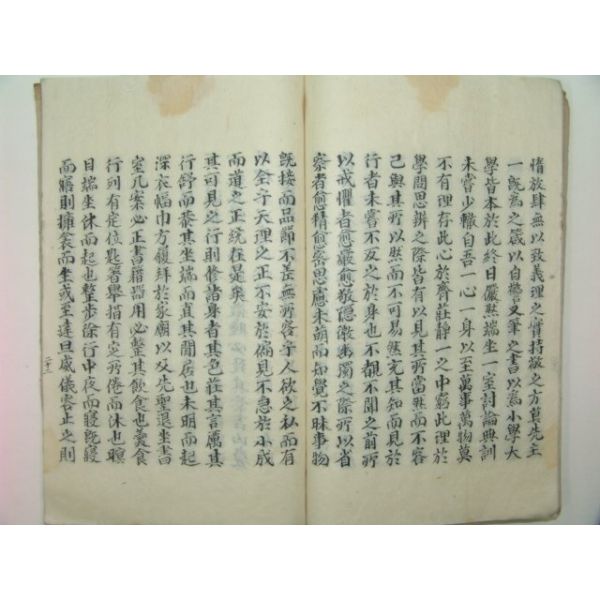 惰放肆無以致義理之實持敬之方莫先主
一既為之箴以自警又筆之書以為小學大
學皆本於此終日儼然端坐一室討論典訓
未嘗少輟自吾一心一身以至萬事萬物莫
不有理存此心於齊莊靜一之中窮此理於
學問思辨之際皆有以見其所當然而不容
已與其所以然而不可易然充其知而見於
行者未嘗不反之於身也不覩不聞之前所
以戒懼者愈嚴愈敬隱微幽獨之際所以省
察者愈精愈密思慮未萌而知覺不昧事物
既接而品節不差無所容乎人欲之私而有
以全乎天理之正不安於偏見不急於小成
而道之正統在是矣
其可見之行則修諸身者其色莊其言厲其
行舒而恭其坐端而直其閒居也未明而起
深衣幅巾方履拜家廟以及先聖退坐書
室几案必正書籍器用必整其飲食也羹食
行列有定位匙箸舉措有定所倦而休也瞑
目端坐休而起也整步徐行中夜而寢既寢
而寤則擁衾而坐或至達旦威儀容止之則
二十三